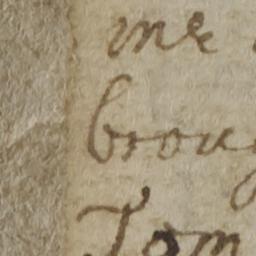 me
broug
Tom